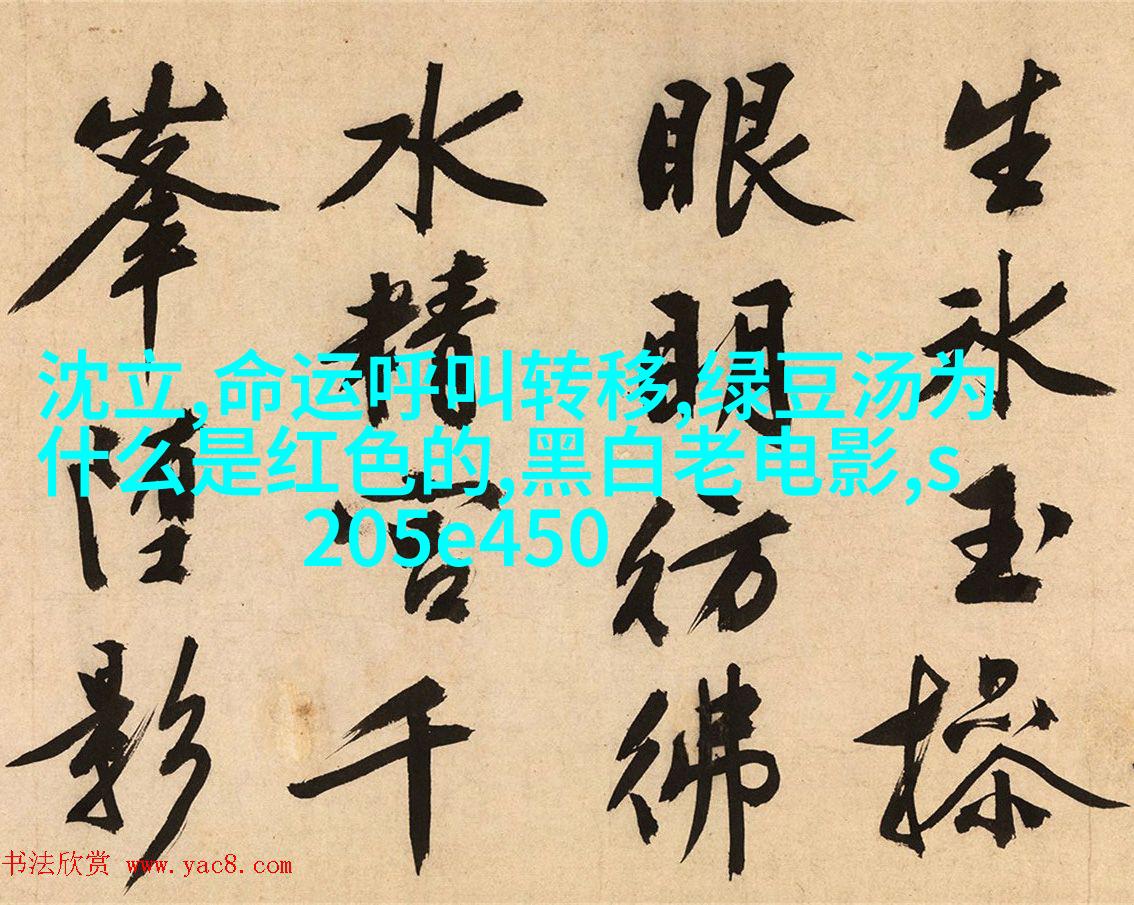 生冰玉操
眼明彷彿
水精宮千
峯墮影
沈立,命运呼叫转移,绿豆汤为
什么是红色的,黑白老电影,s
205e450
书法欣赏 www.yac8.com